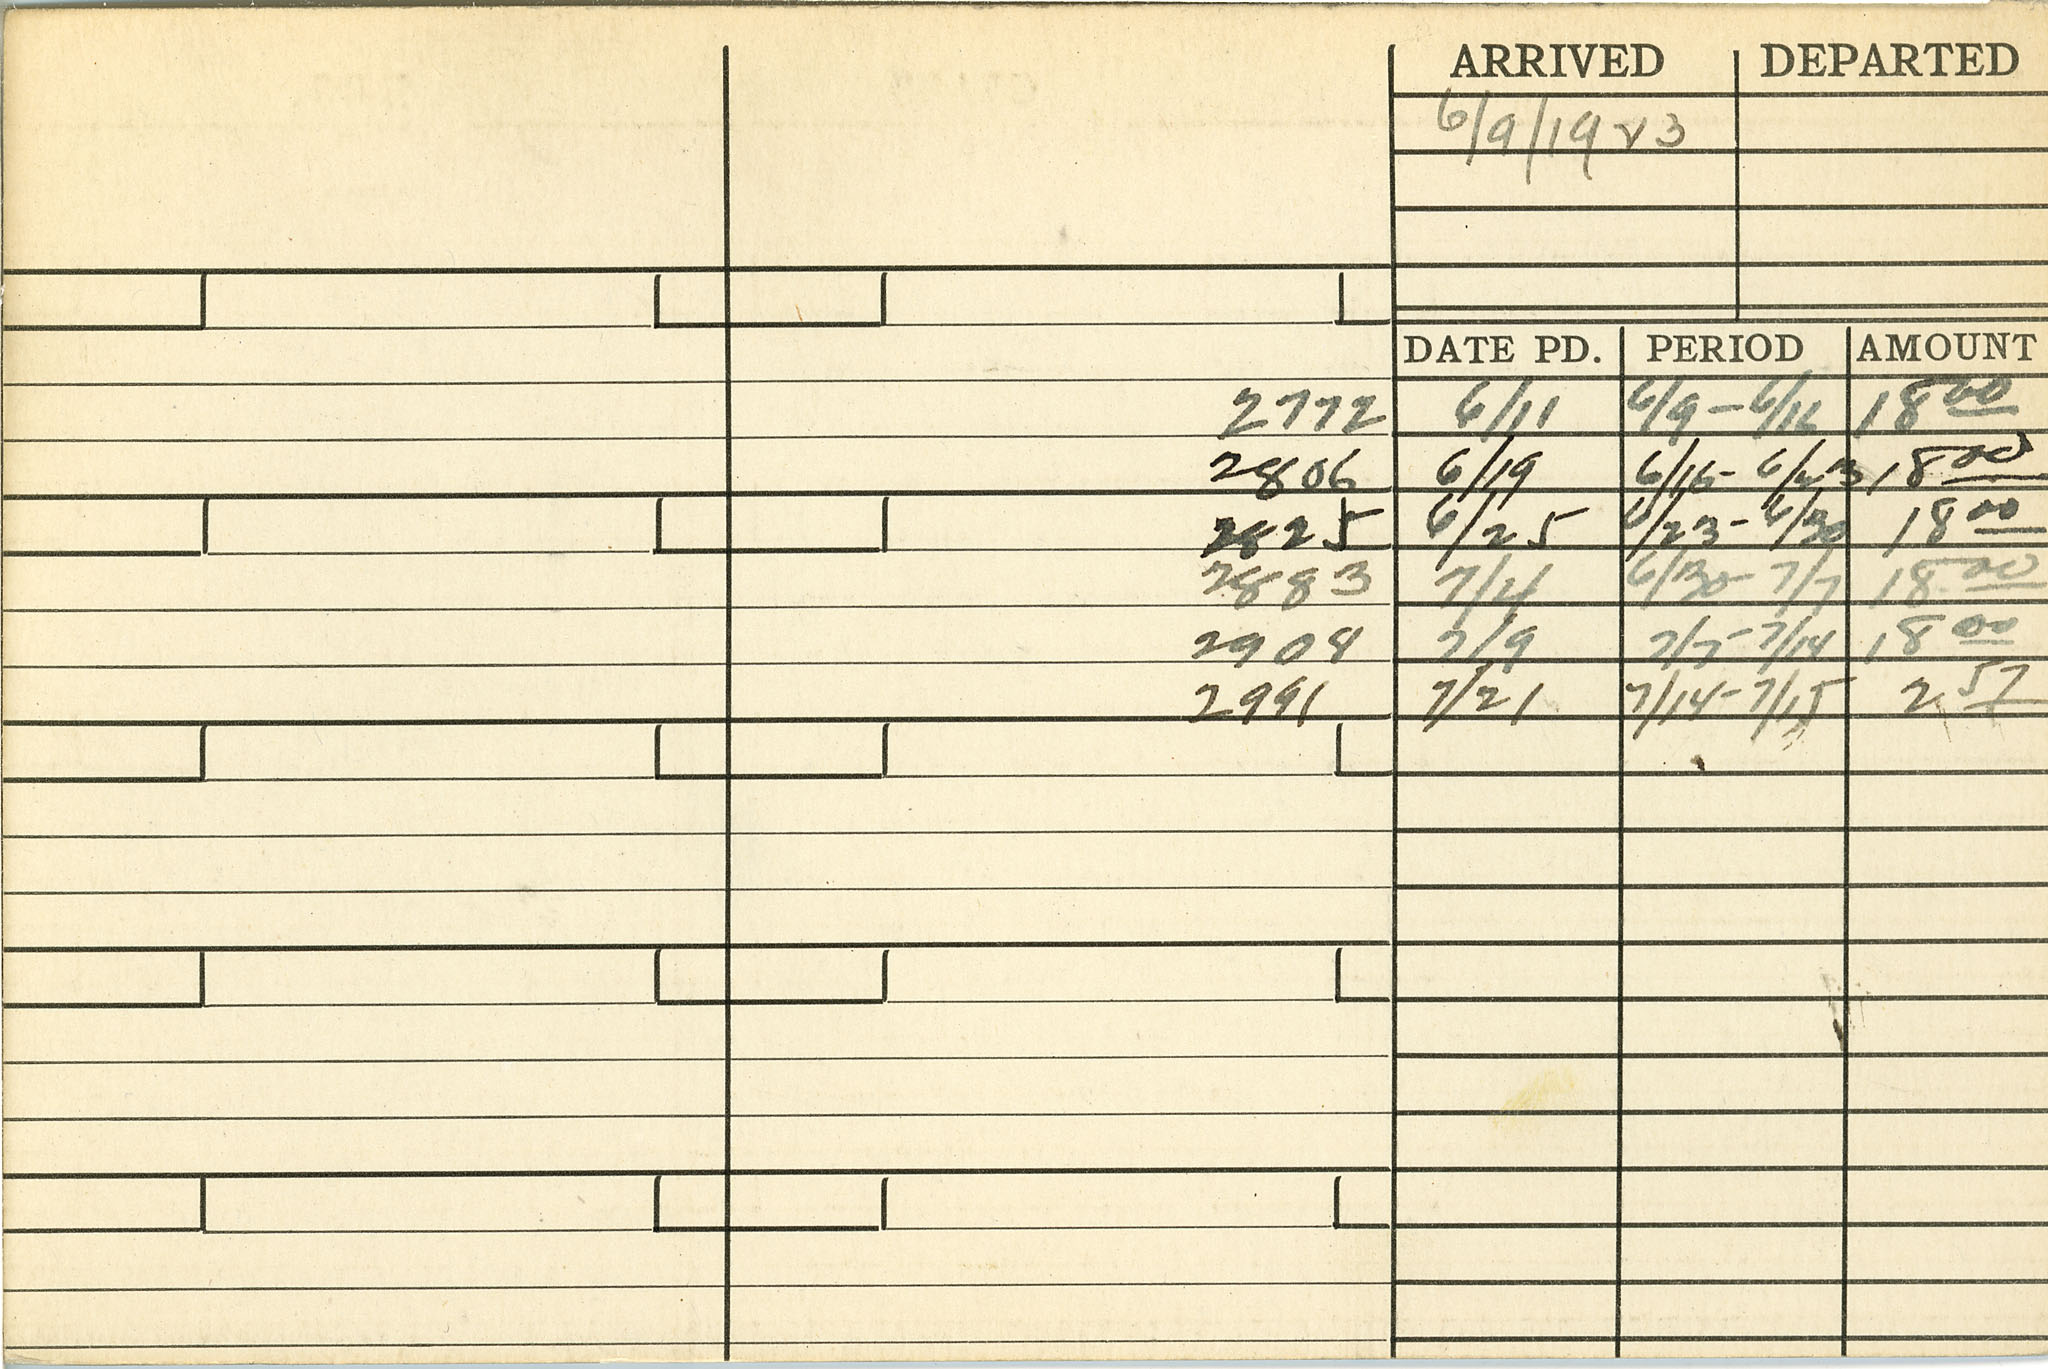 ARRIVED DEPARTED
6/9/19 v3
DATE PD. PERIOD AMOUNT
2772 6/11 6/9 - 6/16 18 00
2806 6/19 6/16 - 6/23 18 00
2825 6/25 6/23 - 6/30 18 00
2883 7/4 6/30 - 7/7 18 00
2908 7/9 7/7 - 7/14 18 00
2991 7/21 7/14 - 7/15 2 57